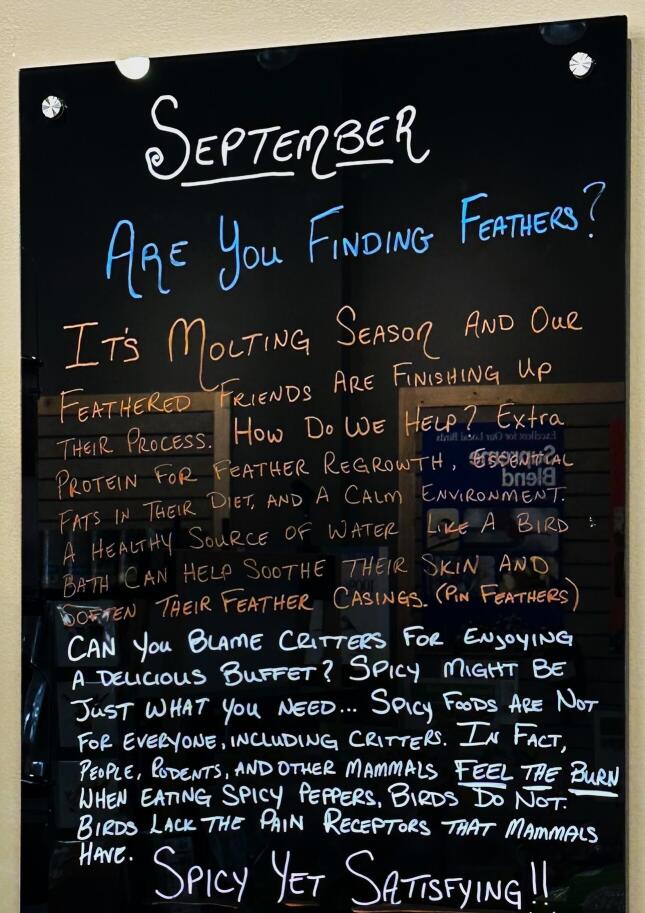 September
Are You Finding Feathers?
It's Molting Season And Our
Feathered Friends Are Finishing Up
Their Process. How Do We Help? Extra
Protein For Feather Regrowth, Essential
Fats in Their Diet, and A Calm Environment.
A Healthy Source of Water Like A Bird
Bath Can Help Soothe Their Skin And
Soften Their Feather Casings. (Pin Feathers)
Can You Blame Critters For Enjoying
A Delicious Buffet? Spicy Might Be
Just What You Need... Spicy Foods Are Not
For Everyone, Including Critters. In Fact,
People, Rodents, And Other Mammals Feel The Burn
When Eating Spicy Peppers, Birds Do Not.
Birds Lack The Pain Receptors That Mammals
Have.
Spicy Yet Satisfying!!
Excellent for Our Local Birds
Blend